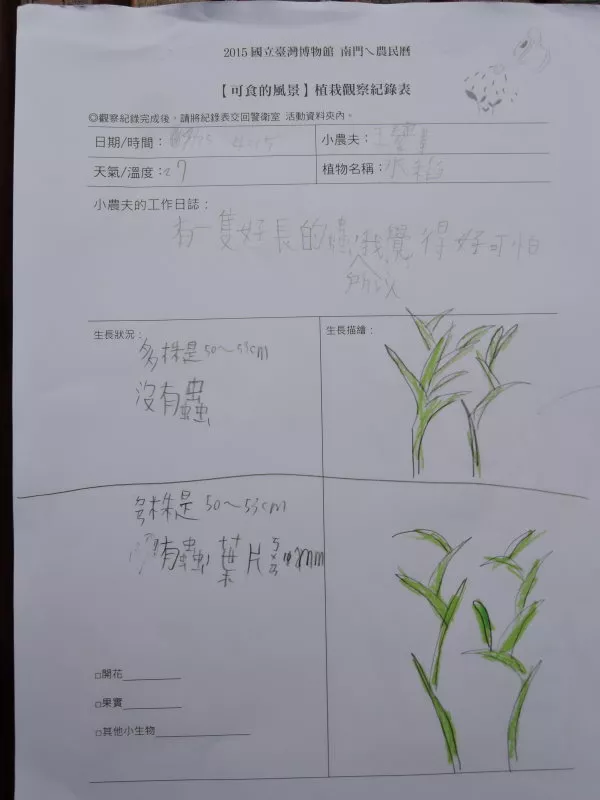 2015 國立臺灣博物館 南門ㄟ農民曆
【可食的風景】植栽觀察紀錄表
◎觀察紀錄完成後，請將紀錄表交回警衛室 活動資料夾內。
日期/時間：
小農夫：王
天氣/溫度：27
植物名稱：水稻
小農夫的工作日誌：
有一隻好長的 我覺得好可怕
所以
生長狀況：
多株是50～53cm
沒有蟲
生長描繪：
多株是50～53cm
有蟲 葉片
□開花
□果實
□其他小生物